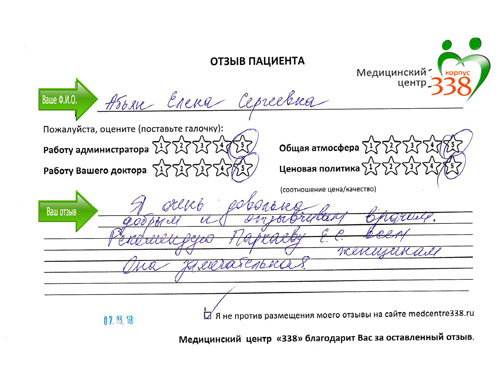 ОТЗЫВ ПАЦИЕНТА
Медицинский центр
корпус 338
Ваше Ф.И.О. Абьян Елена Сергеевна
Пожалуйста, оцените (поставьте галочку):
Работу администратора 1 2 3 4 5
Общая атмосфера 1 2 3 4 5
Работу Вашего доктора 1 2 3 4 5
Ценовая политика 1 2 3 4 5
(соотношение цена/качество)
Ваш отзыв Я очень довольна
добрым и отзывчивым врачом.
Рекомендую Е.Е. всем
женщинам
Она замечательная
Я не против размещения моего отзывы на сайте medcentre338.ru
Медицинский центр «338» благодарит Вас за оставленный отзыв.